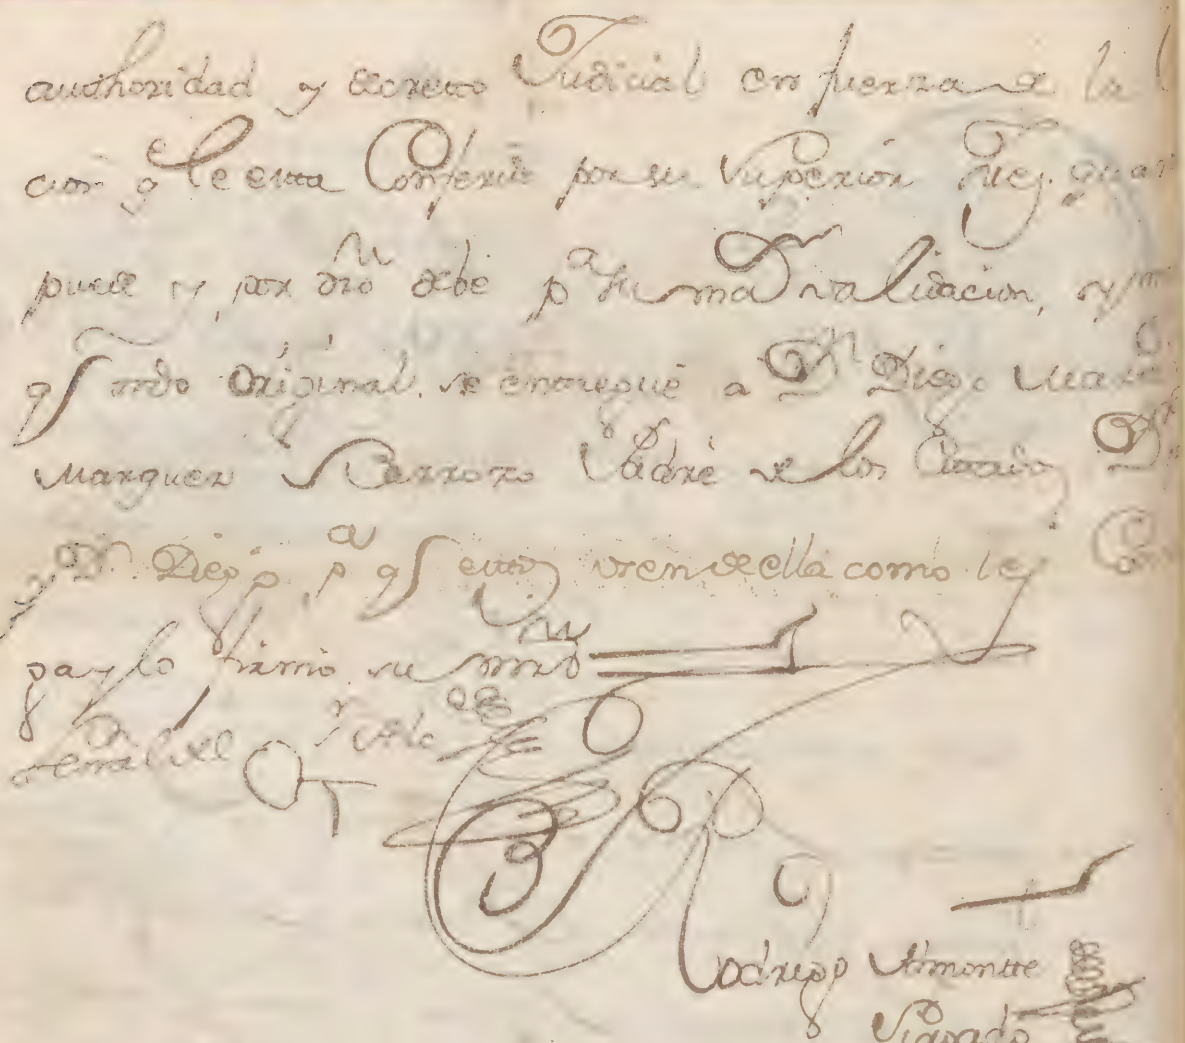 authoridad y decreto Judicial en fuerza de la
cion q le esta Conferida por su Superior Juez. quan
puede y por dro debe pa su maor validacion, y
qs todo original se entregue a Dn Diego
Marquez Barroso Padre de los Citados Dn
Dn Diego pa qs estos usen de ella como les Con
pa y lo firmo su mrd
Rodrigo Almonte